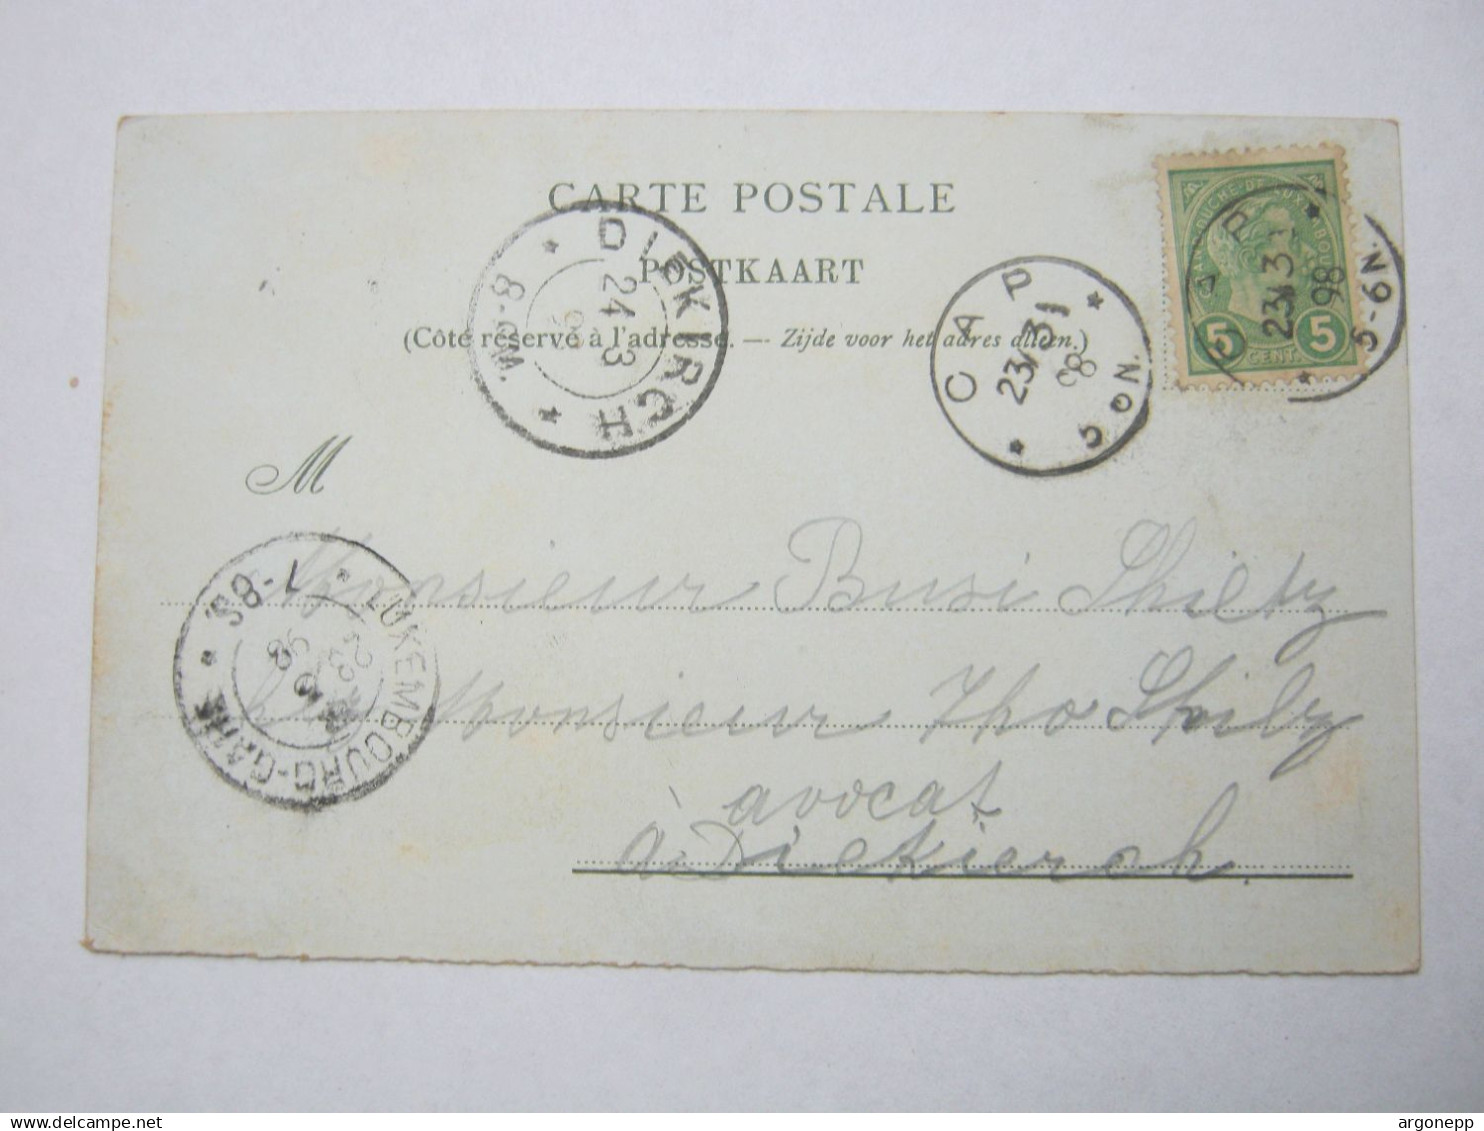 CARTE POSTALE
POSTKAART
(Côté réservé à l'adresse. — Zijde voor het adres alleen.)
DIEKIRCH
24 3
98
8-9M.
CAP
23/3 1
98
5-6N.
CAP
23/3 1
98
5-6N.
GRAND-DUCHÉ-DE-LUXEMBOURG
5 CENT. 5
M
LUXEMBOURG-GARE
23
98
7-8S
Monsieur Busi
Monsieur
avocat
à Diekierch.
argonepp
www.delcampe.net